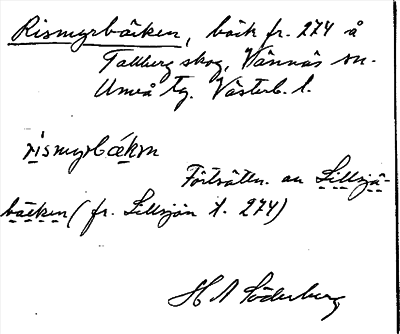 Rismyrbäcken, bäck fr. 274 å
Tallberg skog, Vännäs sn.
Umeå tg. Västerb. l.
rismyrbäkɔn
Fortsättn. av Lillsjö-
bäcken (fr. Lillsjön t. 274)
H A Söderberg